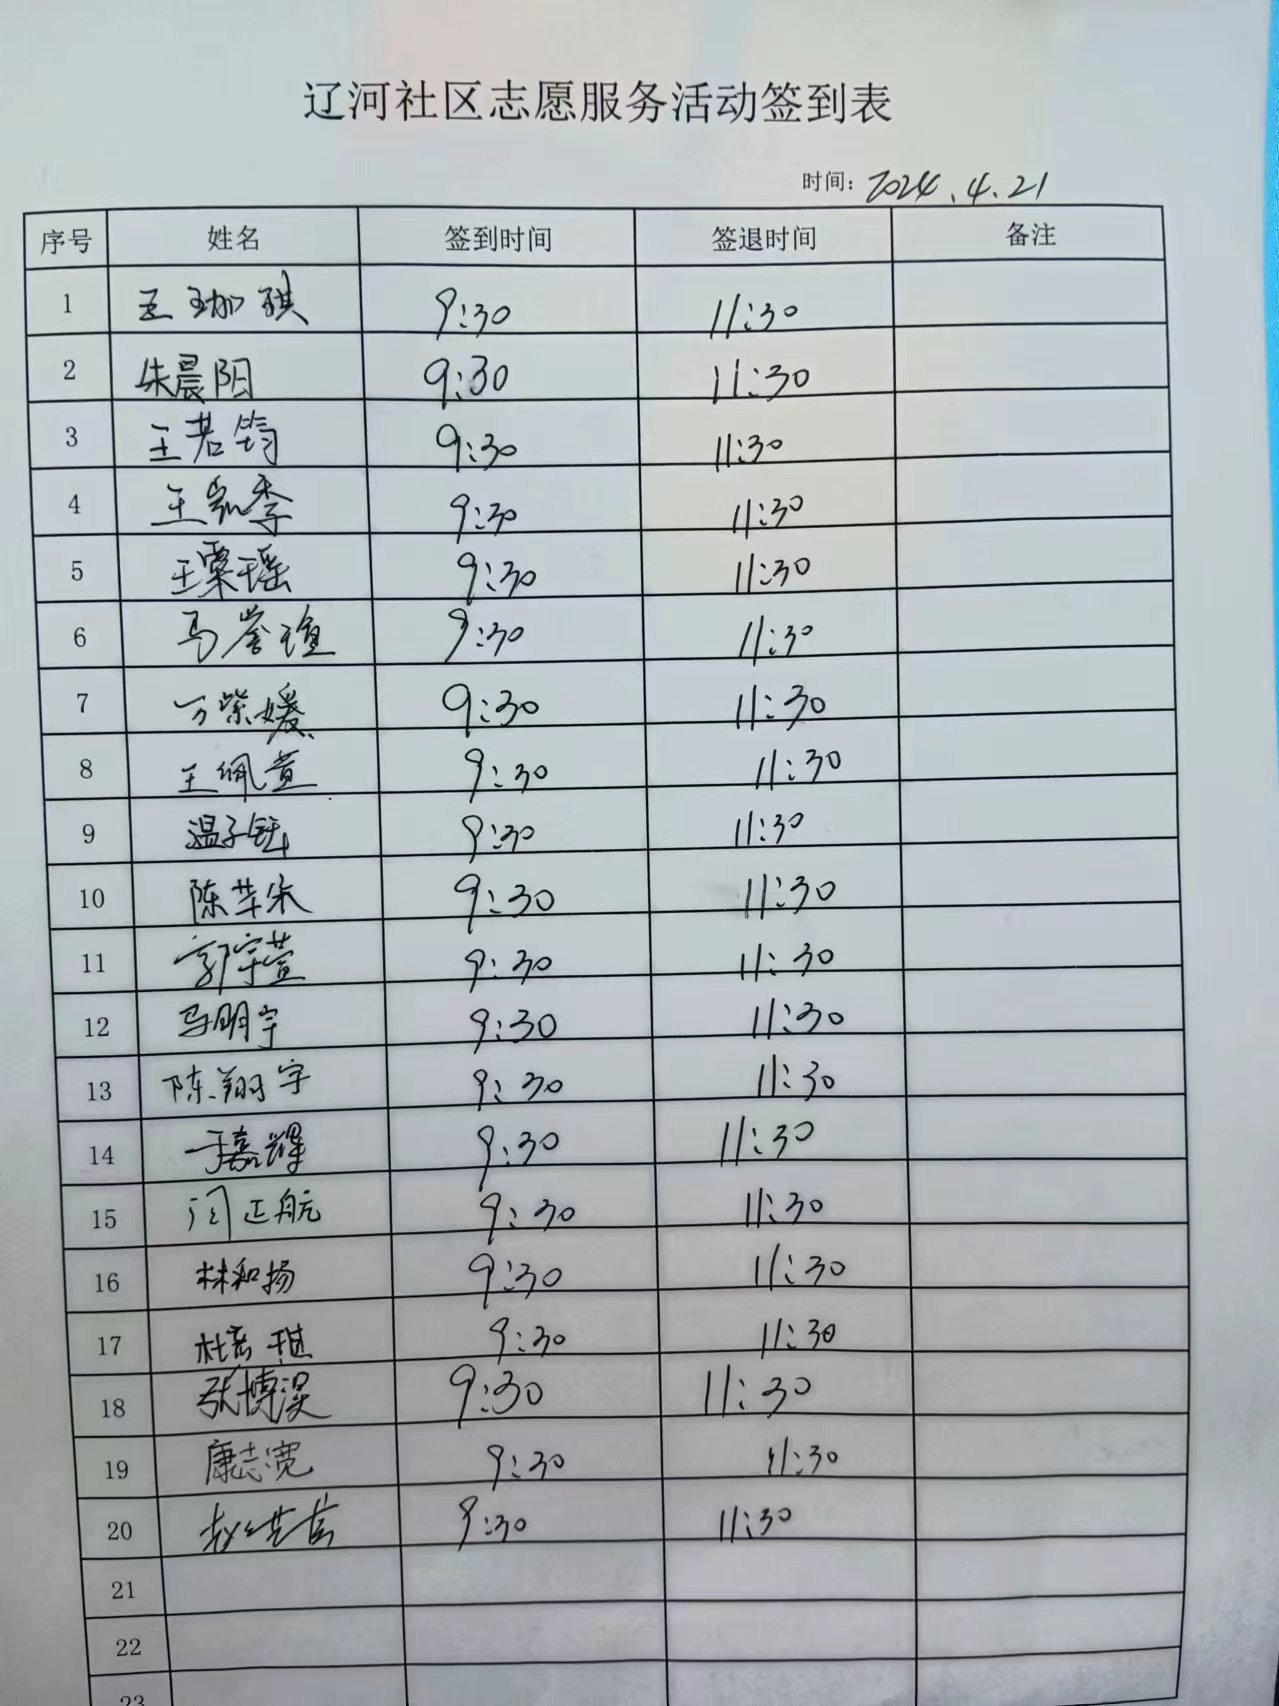 辽河社区志愿服务活动签到表
时间: 2024.4.21
序号 姓名 签到时间 签退时间 备注
1 王珈骐 9:30 11:30
2 朱晨阳 9:30 11:30
3 王若筠 9:30 11:30
4 王凯季 9:30 11:30
5 王粟瑶 9:30 11:30
6 马誉瑄 9:30 11:30
7 万紫媛 9:30 11:30
8 王佩萱 9:30 11:30
9 温子钰 9:30 11:30
10 陈 9:30 11:30
11 郭宇萱 9:30 11:30
12 马明宇 9:30 11:30
13 陈翔宇 9:30 11:30
14 于嘉辉 9:30 11:30
15 闫正航 9:30 11:30
16 林和扬 9:30 11:30
17 杜 琪 9:30 11:30
18 张博淏 9:30 11:30
19 康志宽 9:30 11:30
20 赵 9:30 11:30
21
22
23